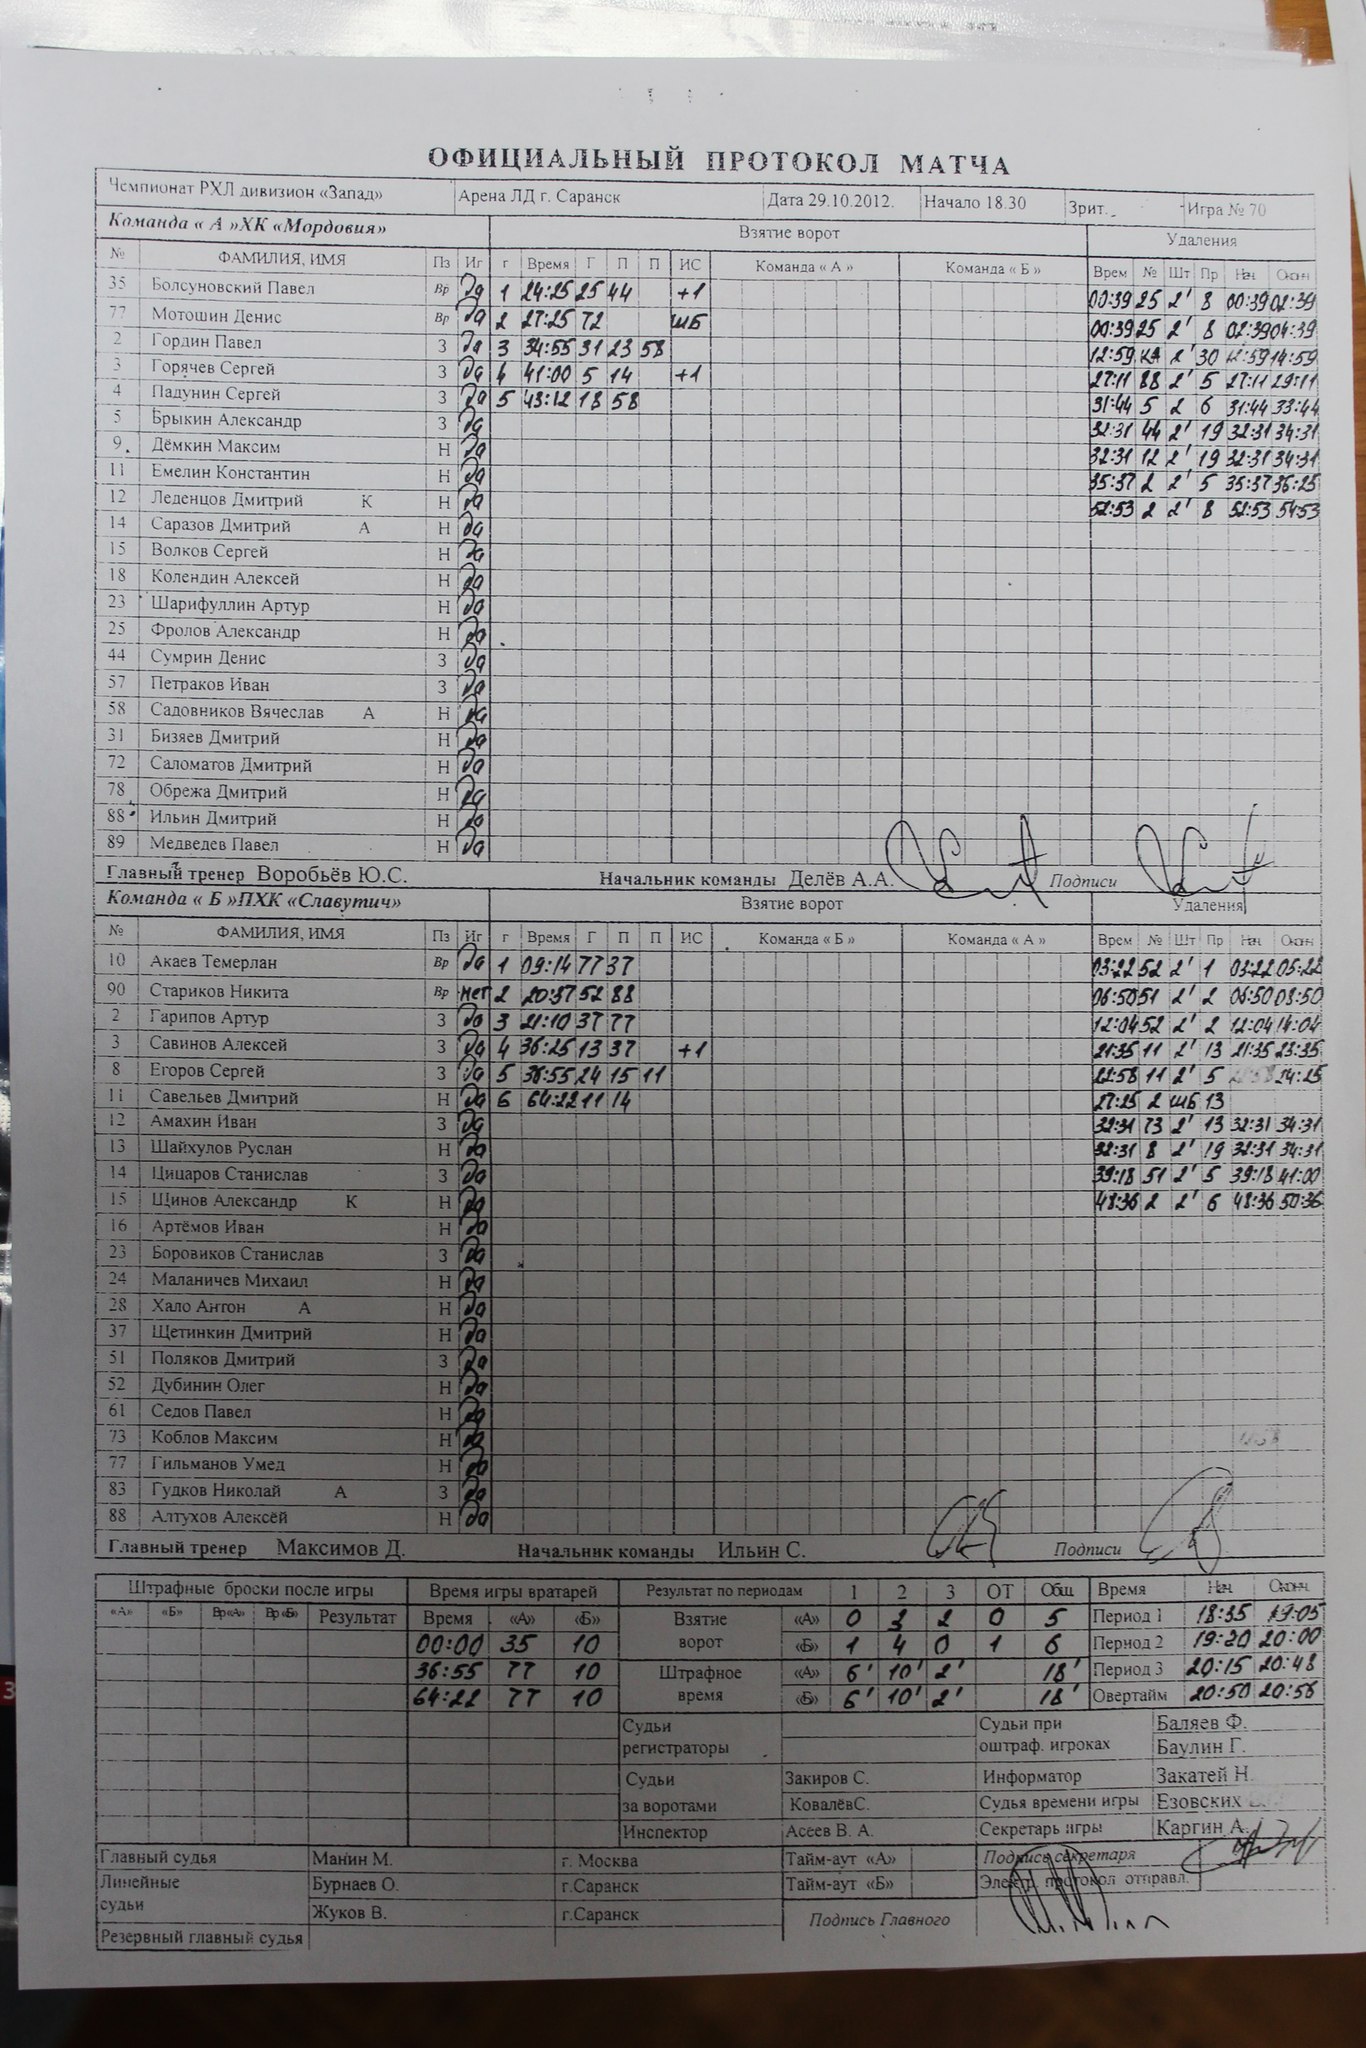 ОФИЦИАЛЬНЫЙ ПРОТОКОЛ МАТЧА
Чемпионат РХЛ дивизион «Запад» Арена ЛД г. Саранск Дата 29.10.2012. Начало 18.30 Зрит. Игра № 70
Команда « А »ХК «Мордовия» Взятие ворот Удаления
№ ФАМИЛИЯ, ИМЯ Пз Иг г Время Г П П ИС Команда « А » Команда « Б » Врем № Шт Пр Нач. Оконч
35 Болсуновский Павел Вр Да 1 24:25 25 44 +1 00:39 25 2' 8 00:39 02:39
77 Мотошин Денис Вр Да 2 27:25 72 ШБ 00:39 25 2' 8 02:39 04:39
2 Гордин Павел З Да 3 34:55 31 23 58 12:59 КА 2' 30 12:59 14:59
3 Горячев Сергей З Да 4 41:00 5 14 +1 27:11 88 2' 5 27:11 29:11
4 Падунин Сергей З Да 5 43:12 18 58 31:44 5 2 6 31:44 33:44
5 Брыкин Александр З Да 32:31 44 2' 19 32:31 34:31
9. Дёмкин Максим Н Да 32:31 12 2' 19 32:31 34:31
11 Емелин Константин Н Да 35:37 2 2' 5 35:37 36:25
12 Леденцов Дмитрий К Н Да 52:53 2 2' 8 52:53 54:53
14 Саразов Дмитрий А Н Да
15 Волков Сергей Н Да
18 Колендин Алексей Н Да
23 Шарифуллин Артур Н Да
25 Фролов Александр Н Да
44 Сумрин Денис З Да
57 Петраков Иван З Да
58 Садовников Вячеслав А Н Да
31 Бизяев Дмитрий Н Да
72 Саломатов Дмитрий Н Да
78 Обрежа Дмитрий Н Да
88 Ильин Дмитрий Н Да
89 Медведев Павел Н Да
Главный тренер Воробьёв Ю.С. Начальник команды Делёв А.А. Подписи
Команда « Б »ПХК «Славутич» Взятие ворот Удаления
№ ФАМИЛИЯ, ИМЯ Пз Иг г Время Г П П ИС Команда « Б » Команда « А » Врем № Шт Пр Нач. Оконч
10 Акаев Темерлан Вр Да 1 09:14 77 37 03:22 52 2' 1 03:22 05:22
90 Стариков Никита Вр Нет 2 20:37 52 88 06:50 51 2' 2 06:50 08:50
2 Гарипов Артур З Да 3 21:10 37 77 12:04 52 2' 2 12:04 14:04
3 Савинов Алексей З Да 4 36:25 13 37 +1 21:35 11 2' 13 21:35 23:35
8 Егоров Сергей З Да 5 36:55 24 15 11 22:58 11 2' 5 22:58 24:25
11 Савельев Дмитрий Н Да 6 64:22 11 14 27:25 2 ШБ 13
12 Амахин Иван З Да 32:31 73 2' 13 32:31 34:31
13 Шайхулов Руслан Н Да 32:31 8 2' 19 32:31 34:31
14 Цицаров Станислав З Да 39:18 51 2' 5 39:18 41:00
15 Щинов Александр К Н Да 48:36 2 2' 6 48:36 50:36
16 Артёмов Иван Н Да
23 Боровиков Станислав З Да
24 Маланичев Михаил Н Да
28 Хало Антон А Н Да
37 Щетинкин Дмитрий Н Да
51 Поляков Дмитрий З Да
52 Дубинин Олег Н Да
61 Седов Павел Н Да
73 Коблов Максим Н Да
77 Гильманов Умед Н Да
83 Гудков Николай А З Да
88 Алтухов Алексей Н Да
Главный тренер Максимов Д. Начальник команды Ильин С. Подписи
Штрафные броски после игры Время игры вратарей Результат по периодам 1 2 3 ОТ Общ. Время Нач. Оконч.
«А» «Б» Вр«А» Вр«Б» Результат Время «А» «Б» Взятие ворот «А» 0 3 2 0 5 Период 1 18:35 19:05
00:00 35 10 «Б» 1 4 0 1 6 Период 2 19:20 20:00
36:55 77 10 Штрафное время «А» 6' 10' 2' 18' Период 3 20:15 20:48
64:22 77 10 «Б» 6' 10' 2' 18' Овертайм 20:50 20:56
Судьи регистраторы Судьи при оштраф. игроках Баляев Ф.
Баулин Г.
Судьи за воротами Закиров С. Информатор Закатей Н.
КовалёвС. Судья времени игры Езовских
Инспектор Асеев В. А. Секретарь игры Каргин А.
Главный судья Манин М. г. Москва Тайм-аут «А» Подпись секретаря
Линейные судьи Бурнаев О. г.Саранск Тайм-аут «Б» Электр. протокол отправл.
Жуков В. г.Саранск Подпись Главного
Резервный главный судья